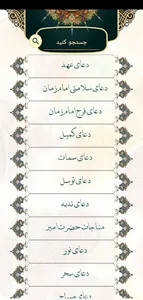 جستجو کنید
دعای عهد
دعای سلامتی امام زمان
دعای فرج امام زمان
دعای کمیل
دعای سمات
دعای توسل
دعای ندبه
مناجات حضرت امیر
دعای نور
دعای سحر
دعای صباح